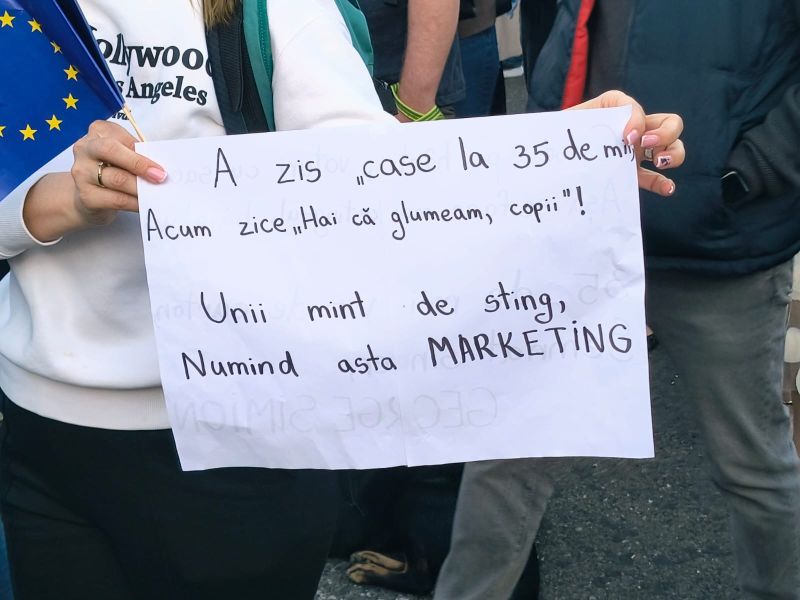 Hollywood
Los Angeles
A zis „case la 35 de mii,
Acum zice „Hai că glumeam, copii"!
Unii mint de sting,
Numind asta MARKETING
GEORGE SIMION